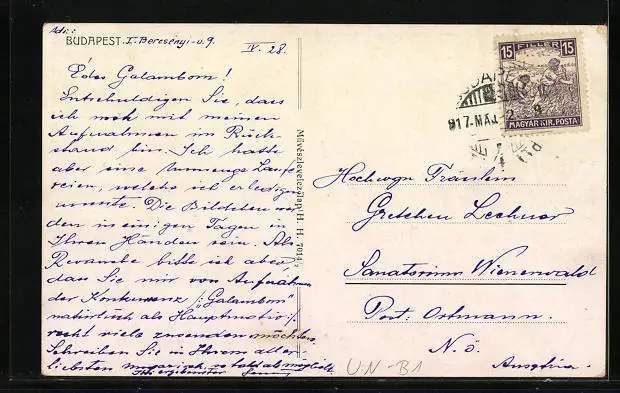 Adr.:
BUDAPEST. I. Bercsényi-u. 9.
IV. 28.
Édes Galambom!
Entschuldigen Sie, dass
ich noch mit meinen
Aufnahmen im Rück-
stand bin. Ich hatte
aber eine Laufe-
reien, welche ich erledigen
musste. Die Bildchen wer-
den in einigen Tagen in
Ihren Händen sein. Als
Revanche bitte ich aber,
dass Sie mir von Aufnahmen
der Konkurrenz /: "Galambom"
natürlich als Hauptmotiv :/
recht viele zusenden möchten.
Schreiben Sie in Ihrem aller
liebsten so bald als möglich.
Ihr ergebenster
Művészlevelezőlap H. H. 7014
15 FILLÉR 15
MAGYAR KIR. POSTA
BUDAPEST
917. MÁJ. 2
Hochwgn Fräulein
Gretchen Lechner
Sanatorium Wienerwald
Post: Ortmann.
N. Ö.
Ausztria.
UN-B1